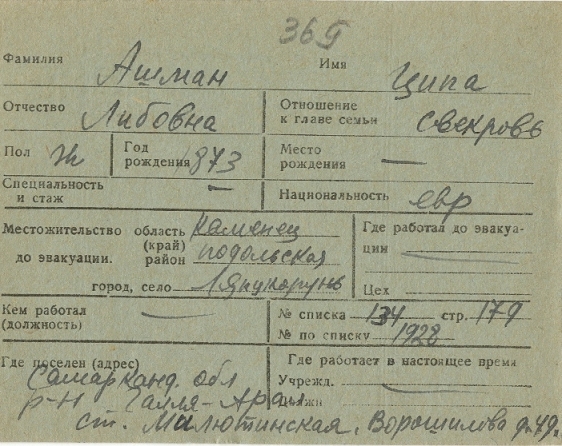 369
Фамилия Ашман Имя Ципа
Отчество Либовна Отношение к главе семьи свекровь
Пол ж Год рождения 873 Место рождения —
Специальность и стаж — Национальность евр
Местожительство до эвакуации. область (край) Каменец район подольская
город, село
Где работал до эвакуации —
Цех
Кем работал (должность) — № списка 134 стр. 179
№ по списку 1928
Где поселен (адрес) Где работает в настоящее время
Самарканд. обл Учрежд. —
р-н Галля-Арал
ст. Милютинская, Ворошилова